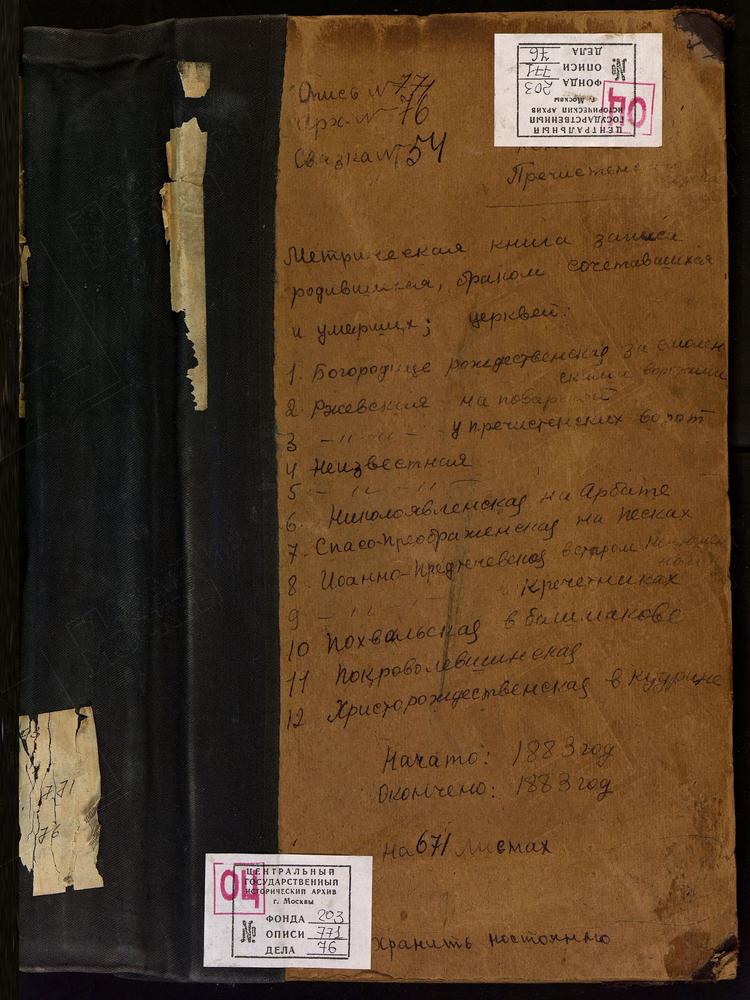 Опись № 771
Арх № 76
Связка № 54
ЦЕНТРАЛЬНЫЙ
ГОСУДАРСТВЕННЫЙ
ИСТОРИЧЕСКИЙ АРХИВ
г. Москвы
ФОНДА 203
№ ОПИСИ 771
ДЕЛА 76
ОЦ
Метрическая книга записи
родившихся, браком сочетавшихся
и умерших; церквей:
1. Богородице рождественская за смолен
скими воротами
2 Ржевская на поварской
3 - " - " - у пречистенских ворот
4 Неизвестная
5 - " - " -
6. Николоявленская на Арбате
7. Спасо-Преображенская на песках
8 Иоанно-Предтечевская в старом
9 - " - " - Кречетниках
10 Похвальская в башмакове
11 Покроволевшинская
12 Христорождественская в кудрине
Начато: 1883 год
Окончено: 1883 год
на 671 листах
771
76
ОЦ
ЦЕНТРАЛЬНЫЙ
ГОСУДАРСТВЕННЫЙ
ИСТОРИЧЕСКИЙ АРХИВ
г. Москвы
ФОНДА 203
№ ОПИСИ 771
ДЕЛА 76
хранить постоянно